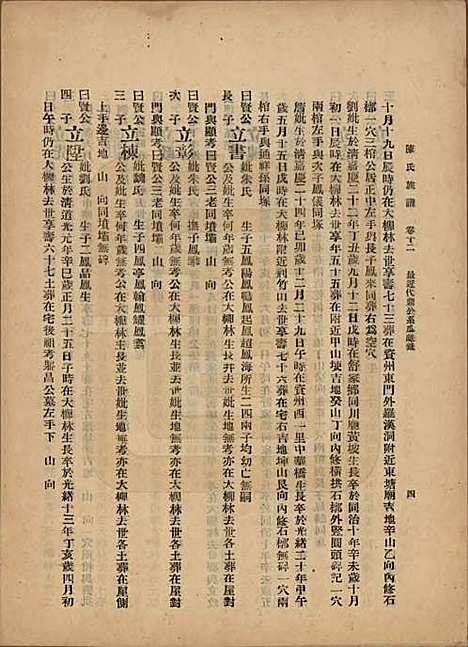 陳氏族譜 卷十二 最近代崇公系瓜瓞錄 四
十月十九日辰時仍在大柳林去世享壽七十三葬在賓州東門外羅漢洞附近東塘廟吉地辛山乙向內修石
槨一穴三棺公居正中左手與長子鳳來同葬右爲空穴
劉妣生於清嘉慶二十二年丁丑歲九月十二日戌時在舒家鄉同川廠黃坡生長卒於同治十年辛未歲十月
初一日辰時在大柳林去世享年五十五葬在附近甲山坡吉地癸山丁向內修橫拱石槨外豎圓頭碑記一穴
兩棺左手與次子鳳儀同塚
妣生於清嘉慶二十四年己卯歲十二月二十九日午時在賓州西一里中驛橋生長卒於光緒二十年甲午
歲五月十五日戌時在大柳林附近利竹山去世享壽七十六葬在宅石吉地坤山艮向內修石槨無碑一穴兩
棺右手與通祥孫同塚
曰賢公 立書 妣朱氏 生子五鳳陽鳳岐鳳梧鳳超鳳海所生二四兩子均幼亡無嗣
長子 公及妣生卒何年歲無考公在大柳林生長卒去世妣生地無考亦在大柳林去世各土葬在屋對
門與顯考曰賢公三老同墳壩 山 向
曰賢公 立彭 妣朱氏 撫子鳳翱
次子 公及妣生卒何年歲無考公在大柳林生長並去世妣生地無考亦在大柳林去世各土葬在屋對
門與顯考曰賢公三老同墳壩 山 向
曰賢公 立棟 妣劉氏 生子四鳳亭鳳翰鳳翺鳳翥
三子 公及妣生卒何年歲無考公在大柳林生長並去世妣生地無考亦在大柳林去世各土葬在屋側
上手邊吉地 山 向同墳壩無碑
曰賢公 立陞 妣張氏 生子二鳳品鳳生
四子 公生於清道光元年辛巳歲正月二十五日子時在大柳林生長卒於光緒十三年丁亥歲四月初
日午時仍在大柳林去世享壽六十七土葬在宅後祖考騰昌公墓左手下 山 向